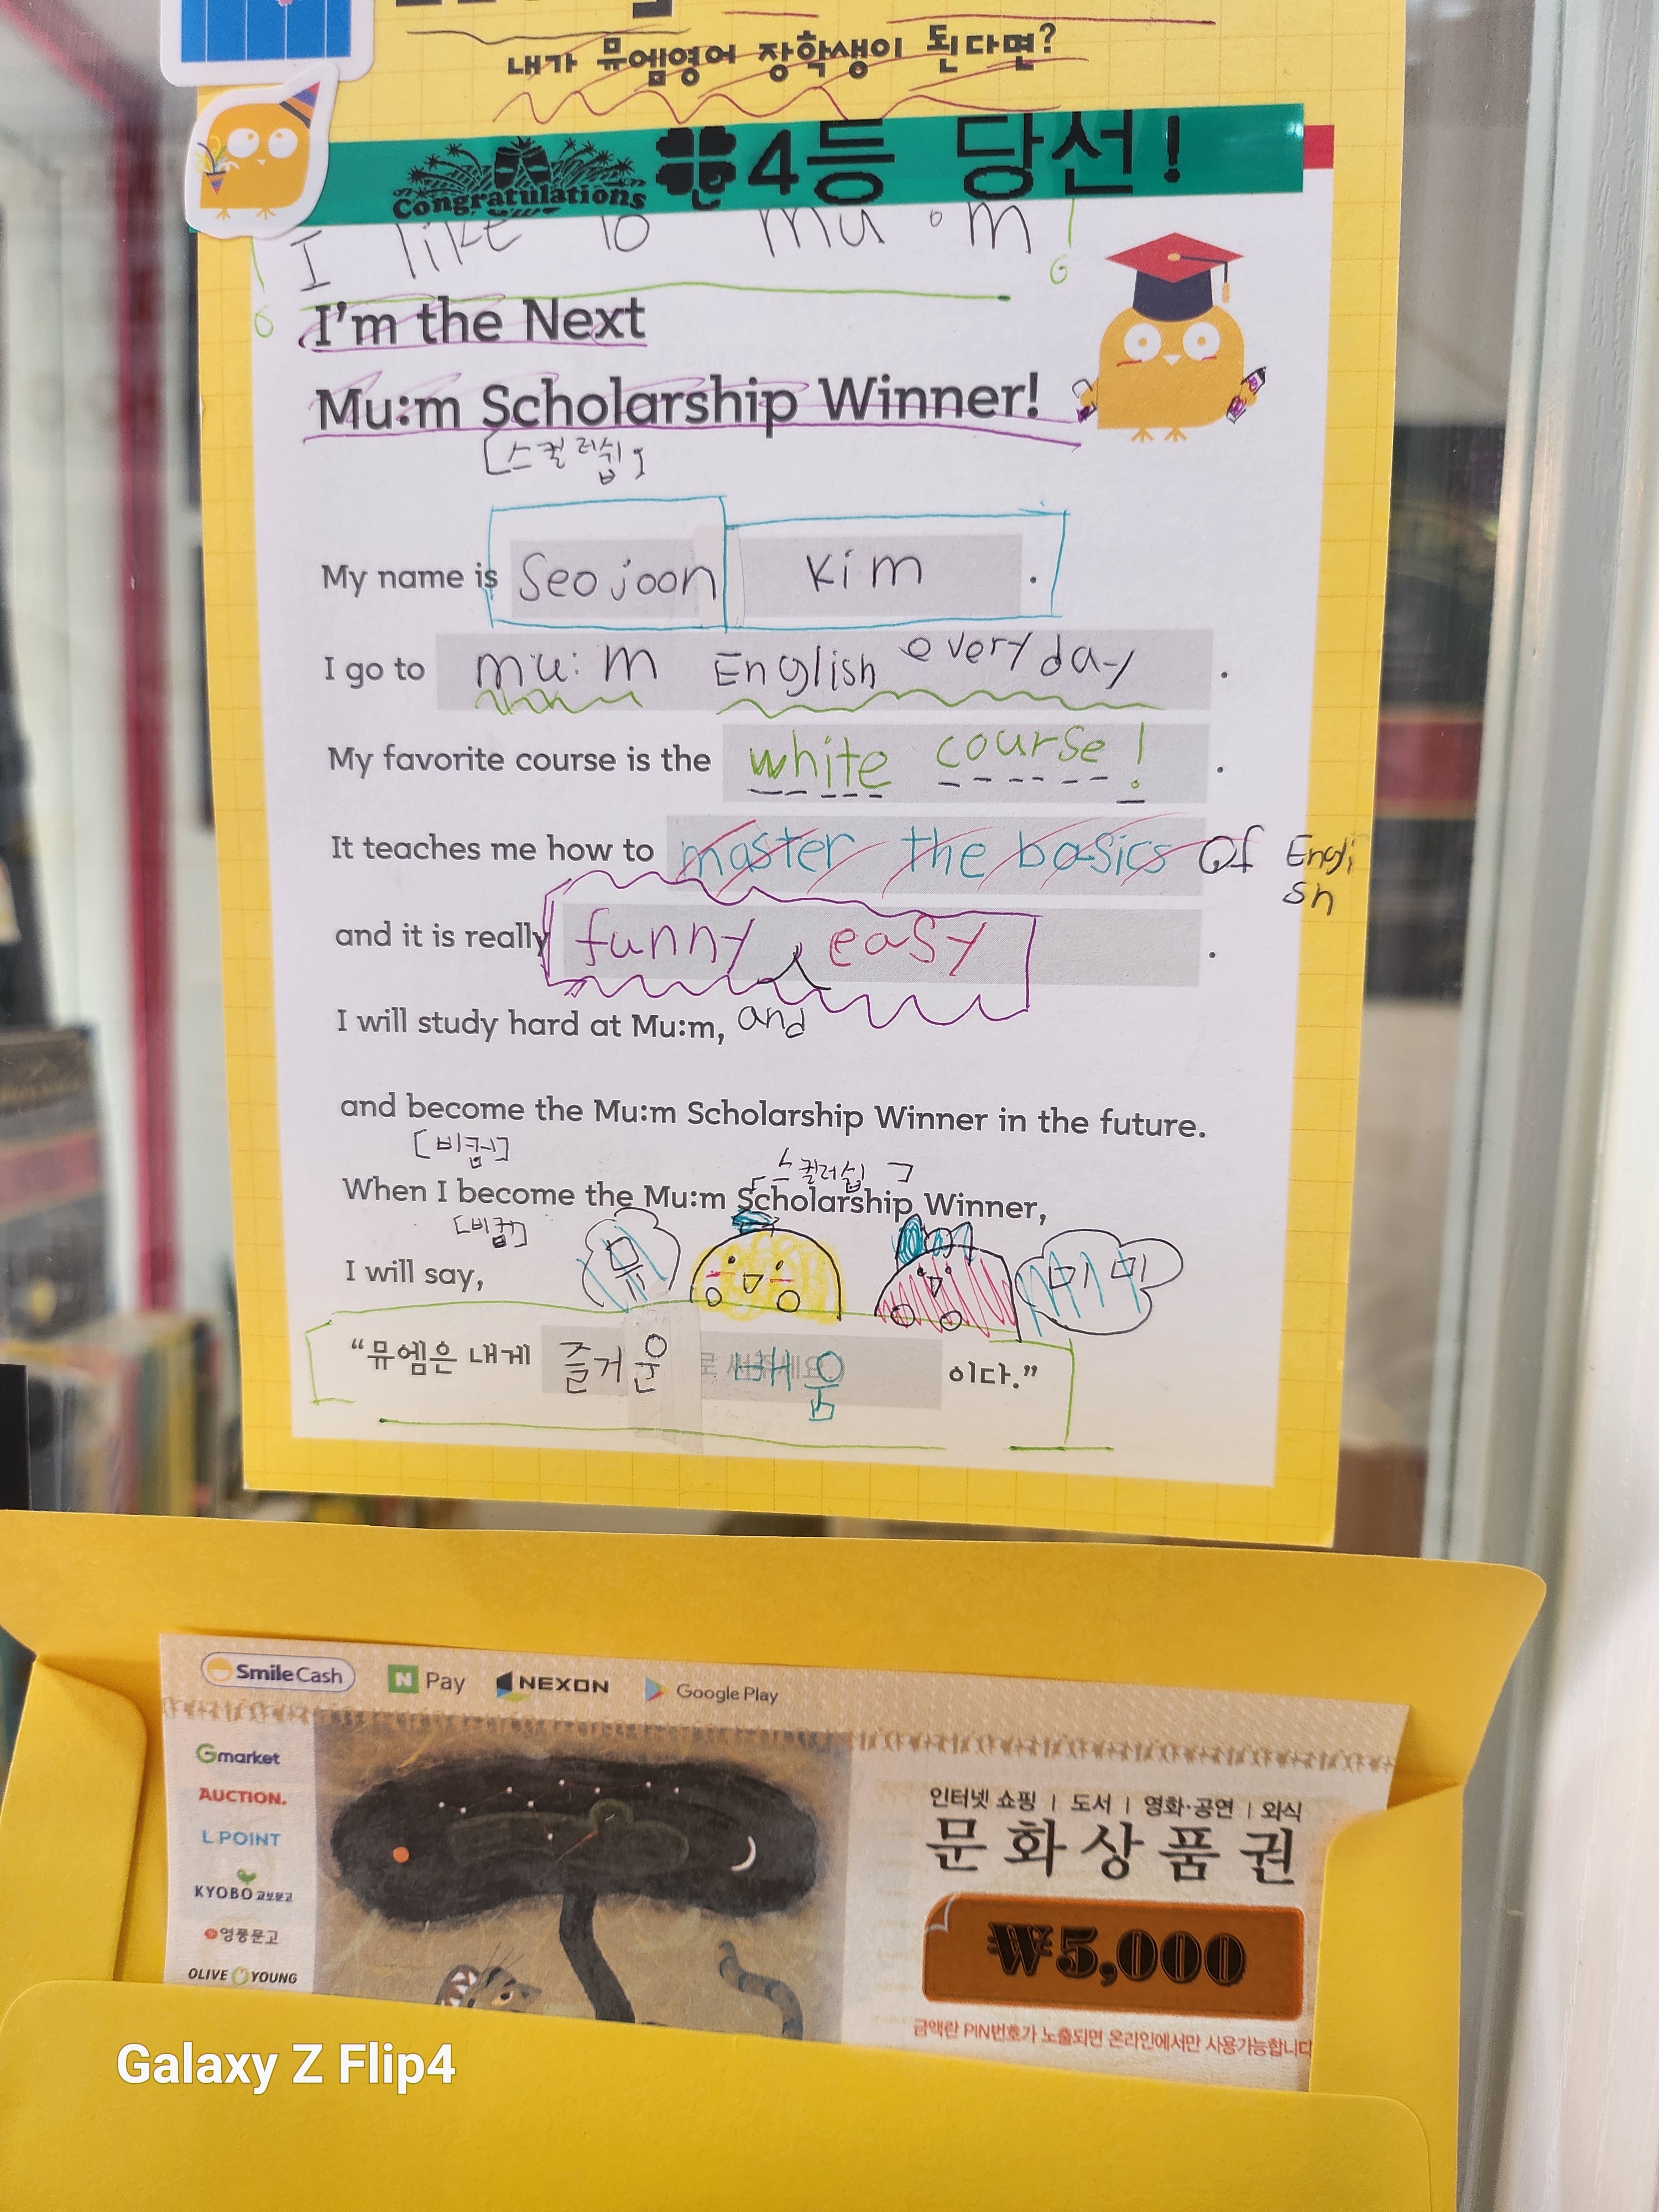 내가 뮤엠영어 장학생이 된다면?
Congratulations 4등 당선!
I like to mu:m!
I'm the Next
Mu:m Scholarship Winner!
[스컬러쉽]
My name is Seojoon Kim.
I go to mu:m English everyday.
My favorite course is the white course!.
It teaches me how to master the basics Of Engli
sh
and it is really funny, easy.
I will study hard at Mu:m, and
and become the Mu:m Scholarship Winner in the future.
[비컴]
스컬러쉽
When I become the Mu:m Scholarship Winner,
[비컴]
I will say,
"뮤엠은 내게 즐거운 배움 이다."
SmileCash N Pay NEXON Google Play
Gmarket
AUCTION.
L POINT
KYOBO 교보문고
영풍문고
OLIVE YOUNG
인터넷 쇼핑 | 도서 | 영화·공연 | 외식
문화상품권
₩5,000
금액란 PIN번호가 노출되면 온라인에서만 사용가능합니다
Galaxy Z Flip4